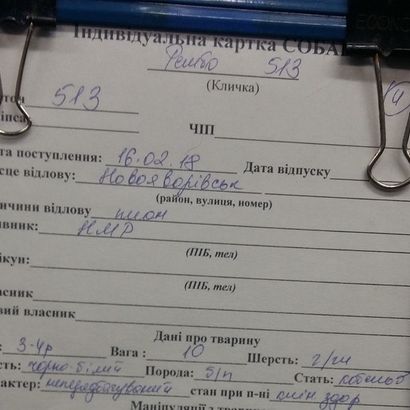 Індивідуальна картка СОБА
Рембо 513
(Кличка)
тон 513
ч
іпса
ЧІП
та поступлення: 16.02.18 Дата відпуску
сце відлову: Новояворівськ
(район, вулиця, номер)
ичини відлову
вник: НМР
(ПІБ, тел)
ікун:
(ПІБ, тел)
асник
вий власник
Дані про тварину
: 3-4р Вага : 10 Шерсть: г/ш
сть: чорно-білий Порода: б/п Стать: кобель
актер: непередбачуваний стан при п-ні клін здор
Маніпуляції з твар